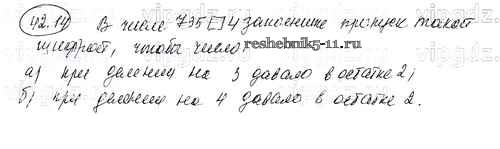 42.14 В числе 735□4 заполните пропуск такой
цифрой, чтобы число
reshebnik5-11.ru
а) при делении на 3 давало в остатке 2;
б) при делении на 4 давало в остатке 2.